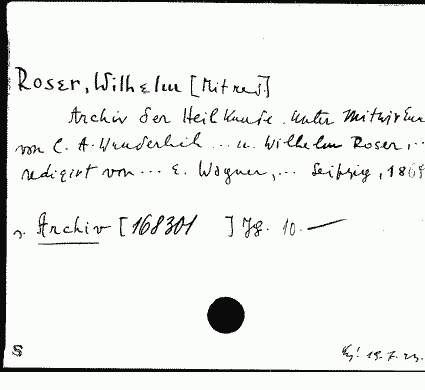 Roser, Wilhelm [Mitred.]
Archiv der Heilkunde. Unter Mitwirkun
von C. A. Wunderlich ... u. Wilhelm Roser, ..
redigirt von ... E. Wagner, ... Leipzig, 1869
s. Archiv [168301 ] Jg. 10. —
S 19.7.23.